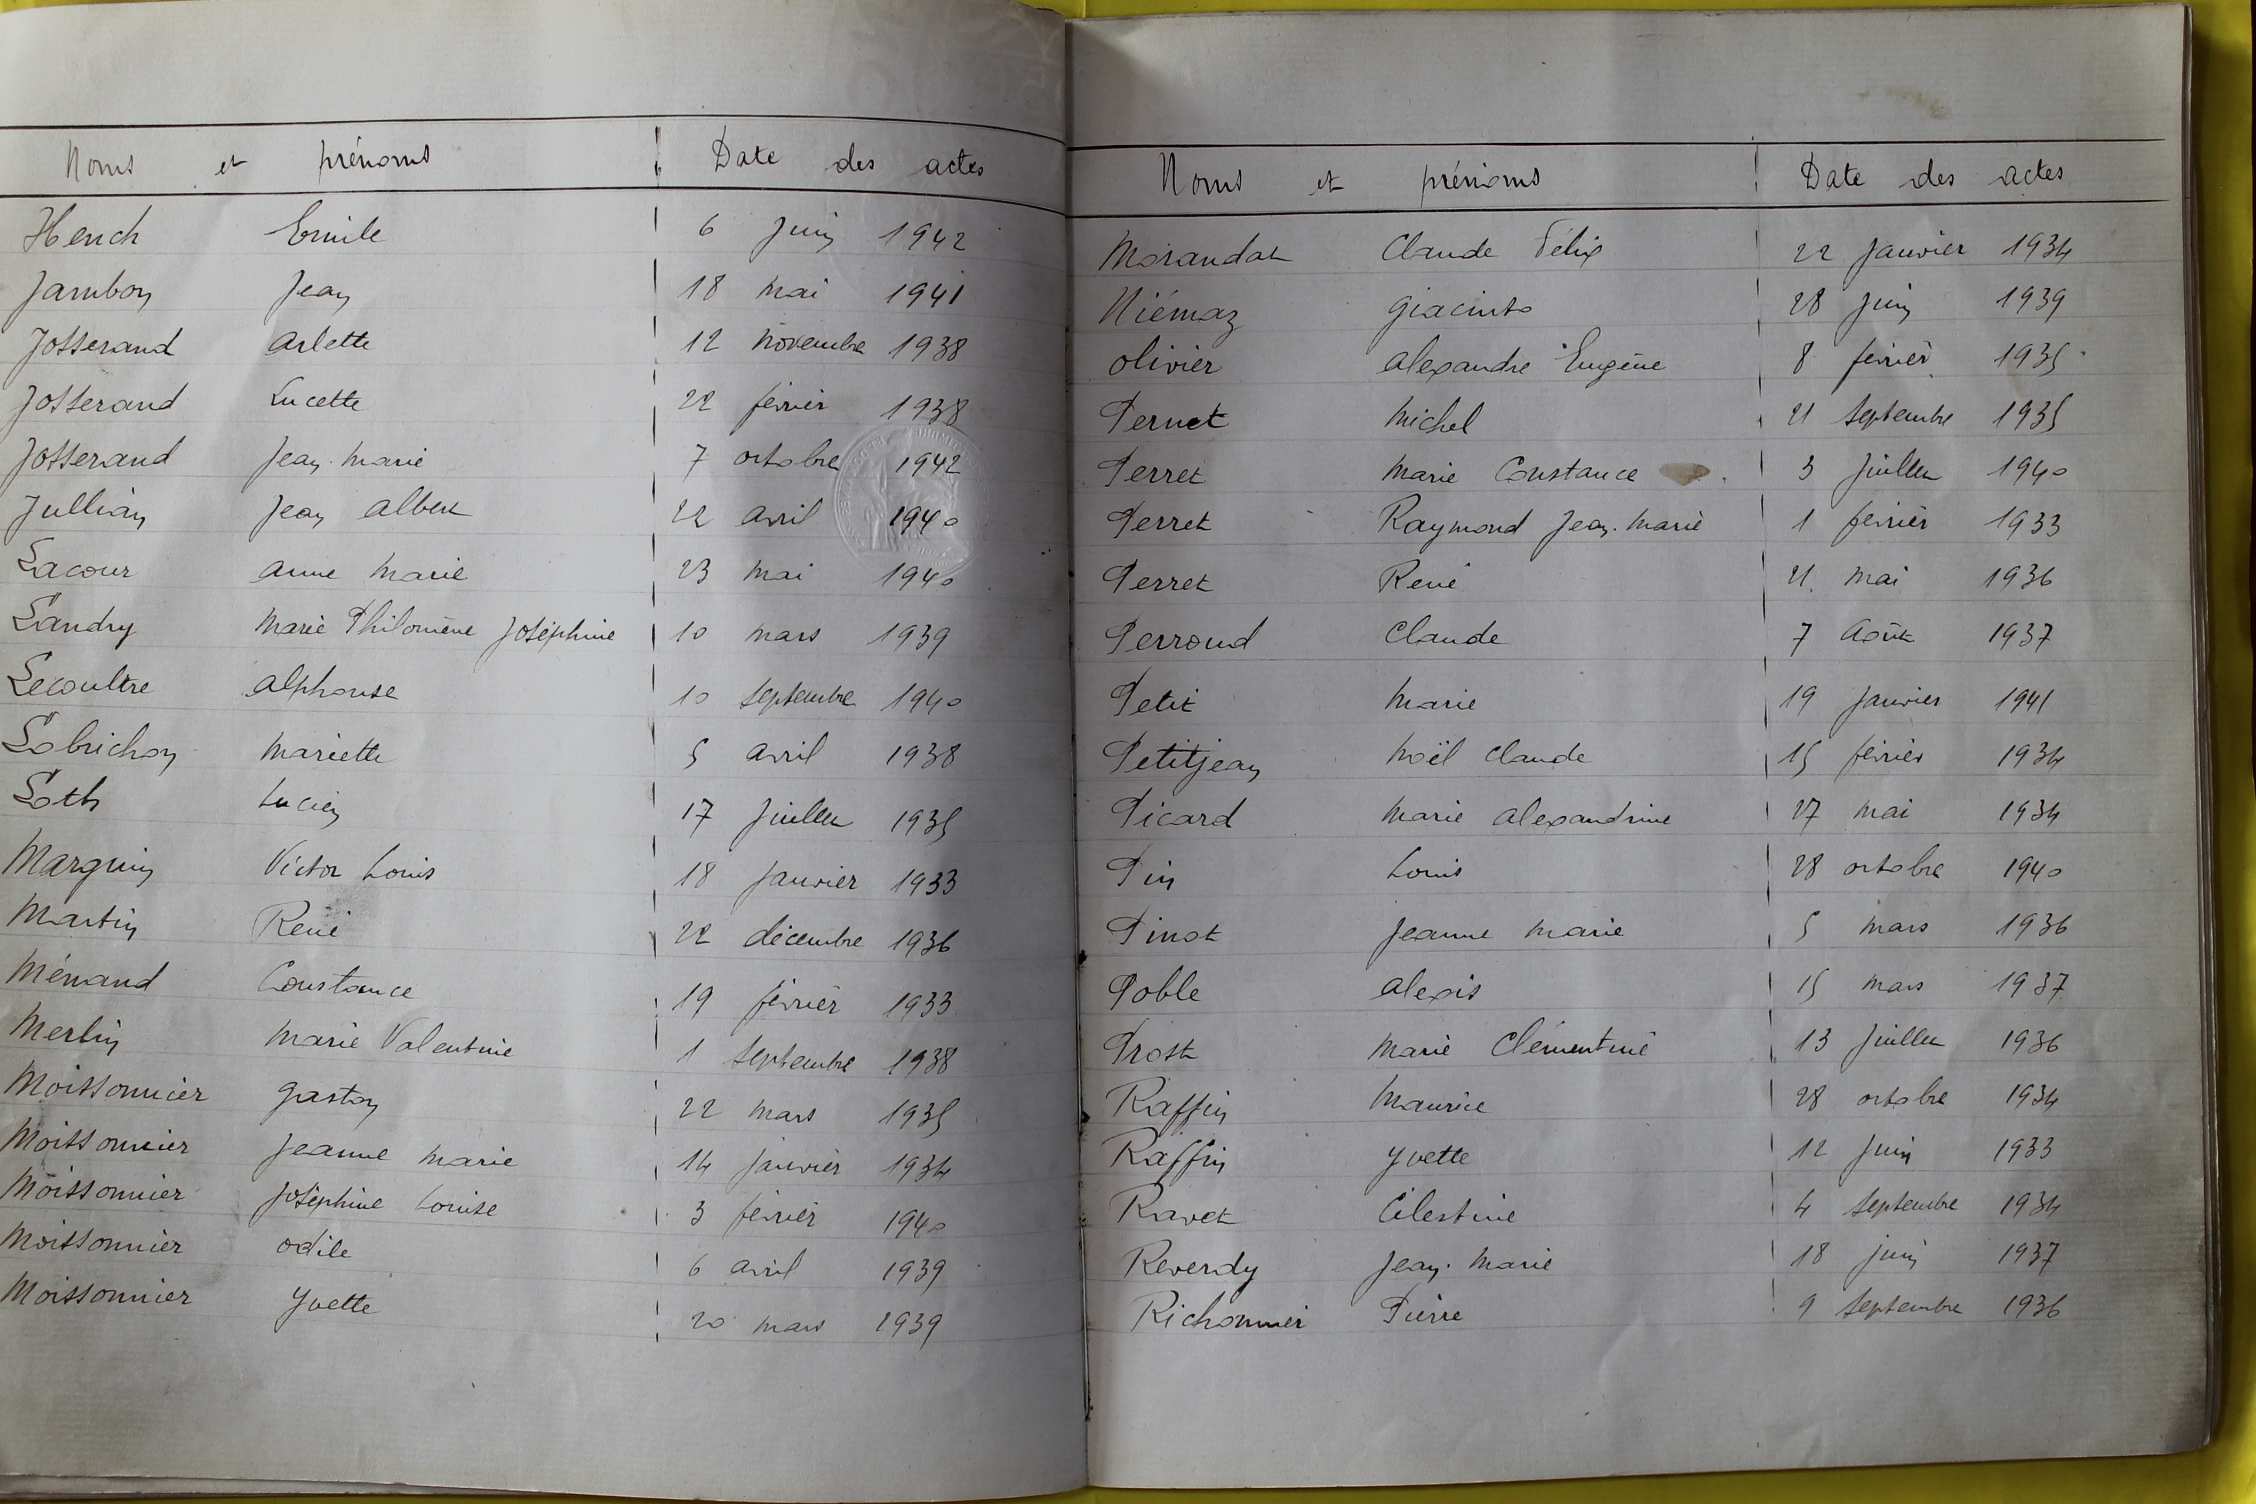 Noms et prénoms Date des actes
Hench Emile 6 Juin 1942
Jambon Jean 18 mai 1941
Josserand Arlette 12 novembre 1938
Josserand Lucette 22 février 1938
Josserand Jean-Marie 7 octobre 1942
Jullian Jean Albert 22 avril 1940
Lacour Anne Marie 23 mai 1940
Landry Marie Philomène Joséphine 10 mars 1939
Lecoultre Alphonse 10 septembre 1940
Lobrichon Mariette 5 avril 1938
Loth Lucien 17 Juillet 1935
Marguin Victor Louis 18 Janvier 1933
Martin René 22 décembre 1936
Ménand Constance 19 février 1933
Merlin Marie Valentine 1 septembre 1938
Moissonnier Gaston 22 mars 1935
Moissonnier Jeanne Marie 14 Janvier 1934
Moissonnier Joséphine Louise 3 février 1940
Moissonnier Odile 6 avril 1939
Moissonnier Yvette 20 mars 1939
Noms et prénoms Date des actes
Morandat Claude Félix 22 Janvier 1934
Niémaz Giacinto 28 Juin 1939
Olivier Alexandre Eugène 8 février 1935
Pernet Michel 21 septembre 1935
Perret Marie Constance 3 Juillet 1940
Perret Raymond Jean-Marie 1 février 1933
Perret René 21 mai 1936
Perroud Claude 7 Août 1937
Petit Marie 19 Janvier 1941
Petitjean Noël Claude 15 février 1934
Picard Marie Alexandrine 27 mai 1934
Pin Louis 28 octobre 1940
Pinot Jeanne Marie 5 mars 1936
Poble Alexis 15 mars 1937
Prost Marie Clémentine 13 Juillet 1936
Raffin Maurice 28 octobre 1934
Raffin Yvette 12 Juin 1933
Ravet Célestine 4 septembre 1934
Reverdy Jean-Marie 18 juin 1937
Richonnier Pierre 9 septembre 1936